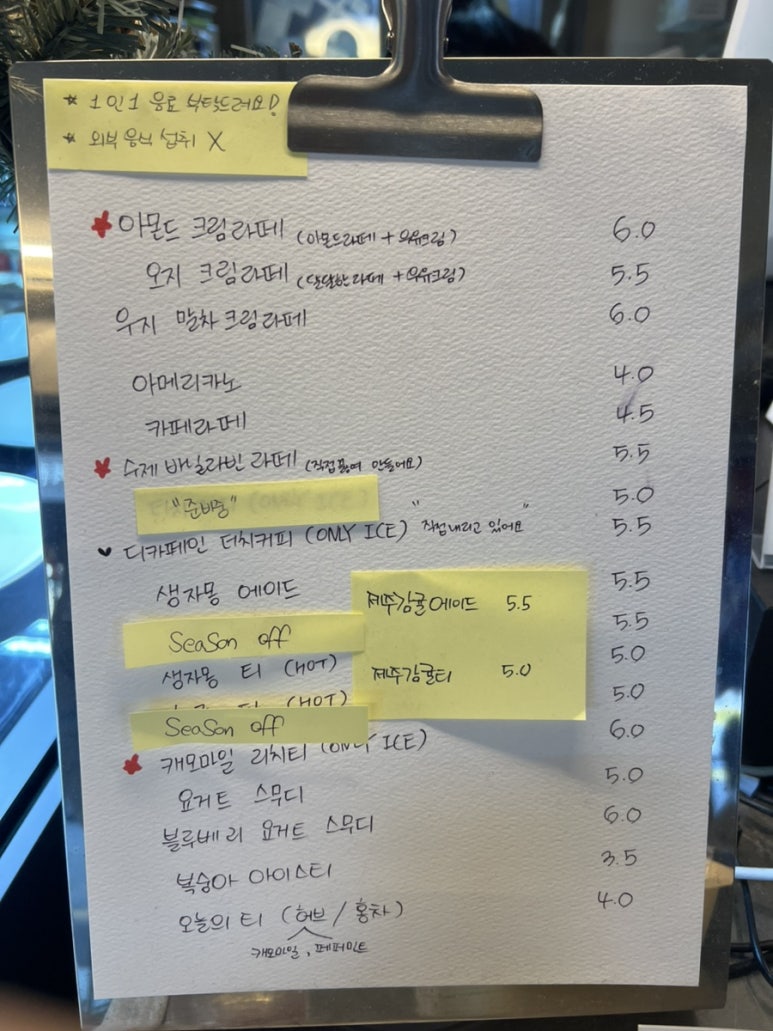 * 1인 1 음료 부탁드려요!
* 외부 음식 섭취 X
★ 아몬드 크림라떼 (아몬드라떼 + 우유크림) 6.0
오지 크림라떼 (달달한 라떼 + 우유크림) 5.5
우지 말차크림라떼 6.0
아메리카노 4.0
카페라떼 4.5
★ 수제 바닐라빈 라떼 (직접 끓여 만들어요) 5.5
"준비중" 5.0
♥ 디카페인 더치커피 (ONLY ICE) "직접내리고 있어요" 5.5
생자몽 에이드 5.5
제주감귤에이드 5.5
Season off 5.5
생자몽 티 (HOT) 5.0
제주감귤티 5.0
(HOT) 5.0
Season off
★ 캐모마일 리치티 (ONLY ICE) 6.0
요거트 스무디 5.0
블루베리 요거트 스무디 6.0
복숭아 아이스티 3.5
오늘의 티 (허브 / 홍차) 4.0
캐모마일, 페퍼민트